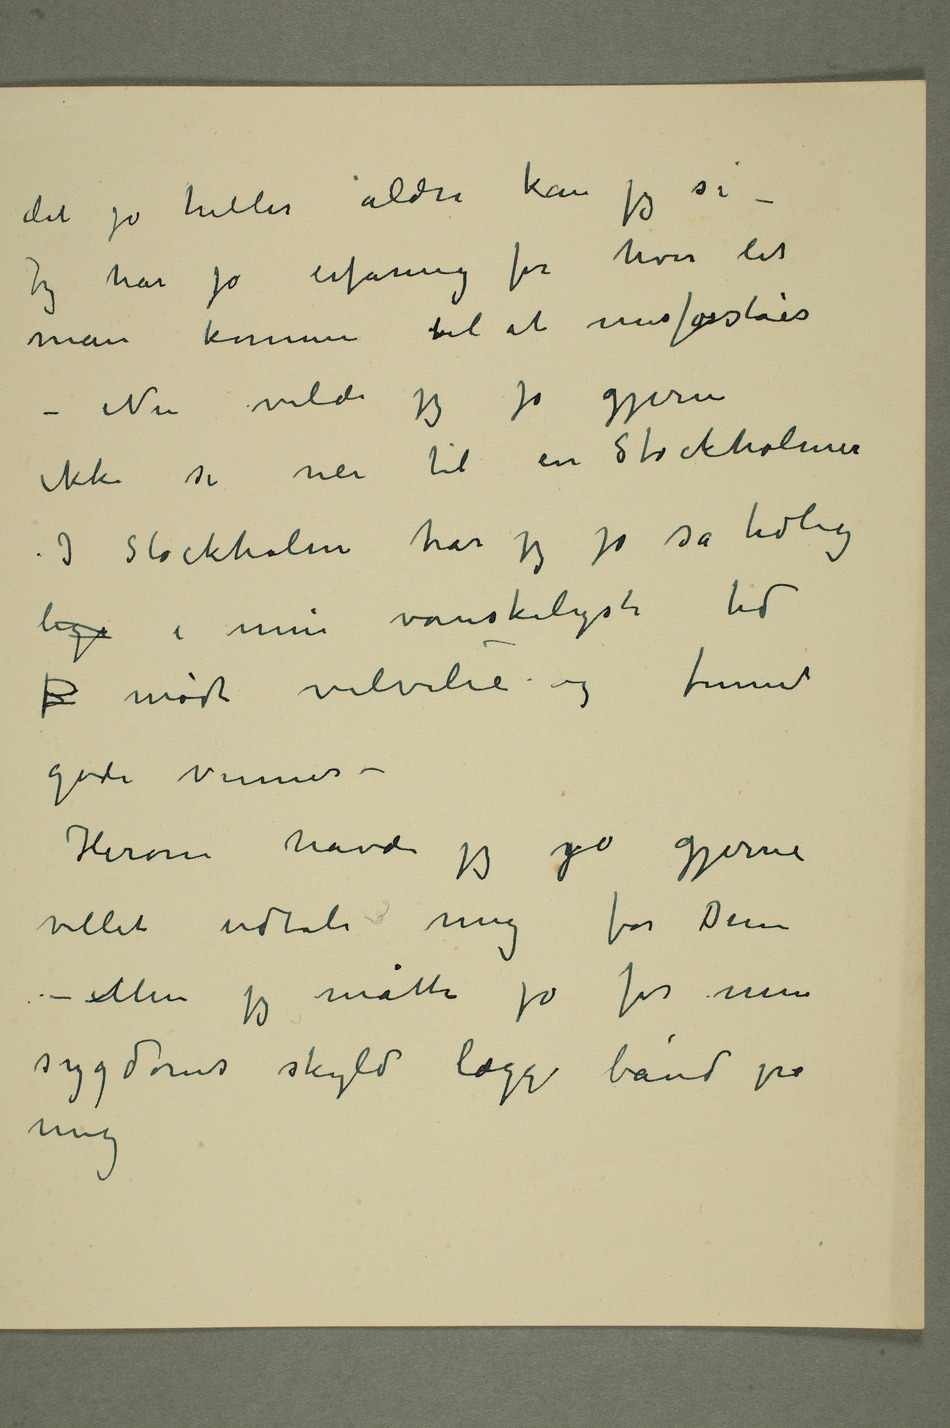 det jo heller aldri kan jeg si –
Jeg har jo erfaring for hvor let
man kommer til at misforståes
– Nu vilde jeg jo gjerne
ikke si nei til en Stockholmer
I Stockholm har jeg jo så tidlig
lige i min vanskeligste tid
mødt velvilie og funnet
gode venner –
Herom havde jeg jo gjerne
villet udtale mig for Dem
– Men jeg måtte jo for min
sygdoms skyld lægge bånd på
mig